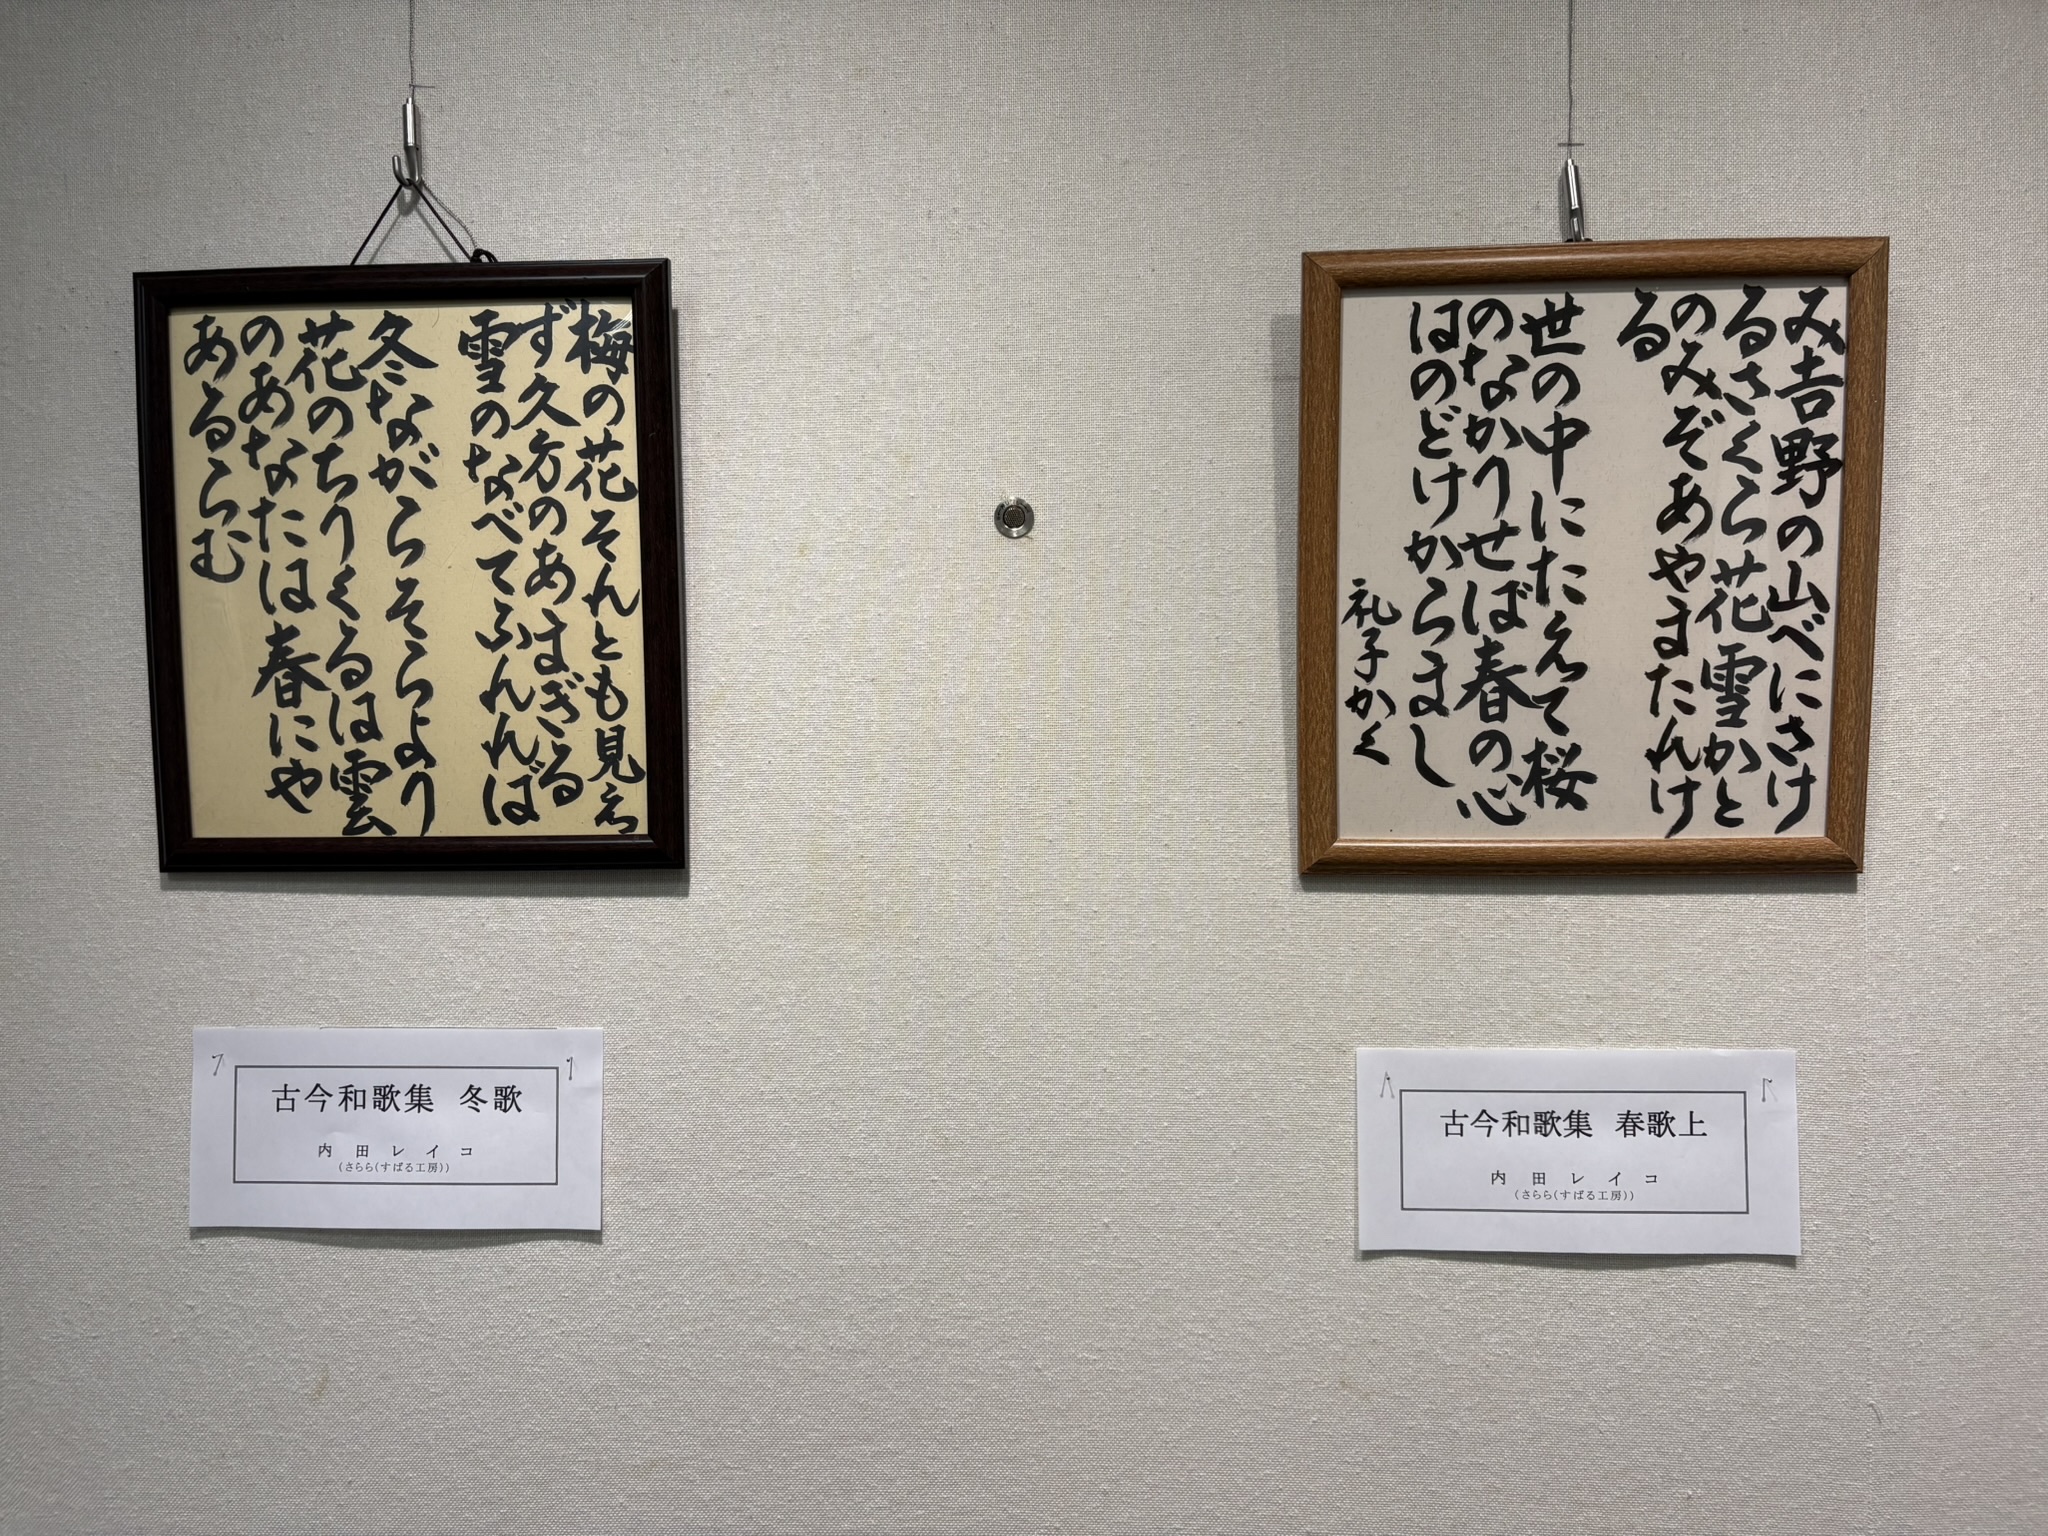 み吉野の山べにさけ
るさくら花雪かと
のみぞあやまたれけ
る
世の中にたえて桜
のなかりせば春の心
はのどけからまし
礼子かく
古今和歌集 春歌上
内田レイコ
(さらら(すばる工房))
梅の花それとも見え
ず久方のあまぎる
雪のなべてふれれば
冬ながらそらより
花のちりくるは雲
のあなたは春にや
あるらむ
古今和歌集 冬歌
内田レイコ
(さらら(すばる工房))